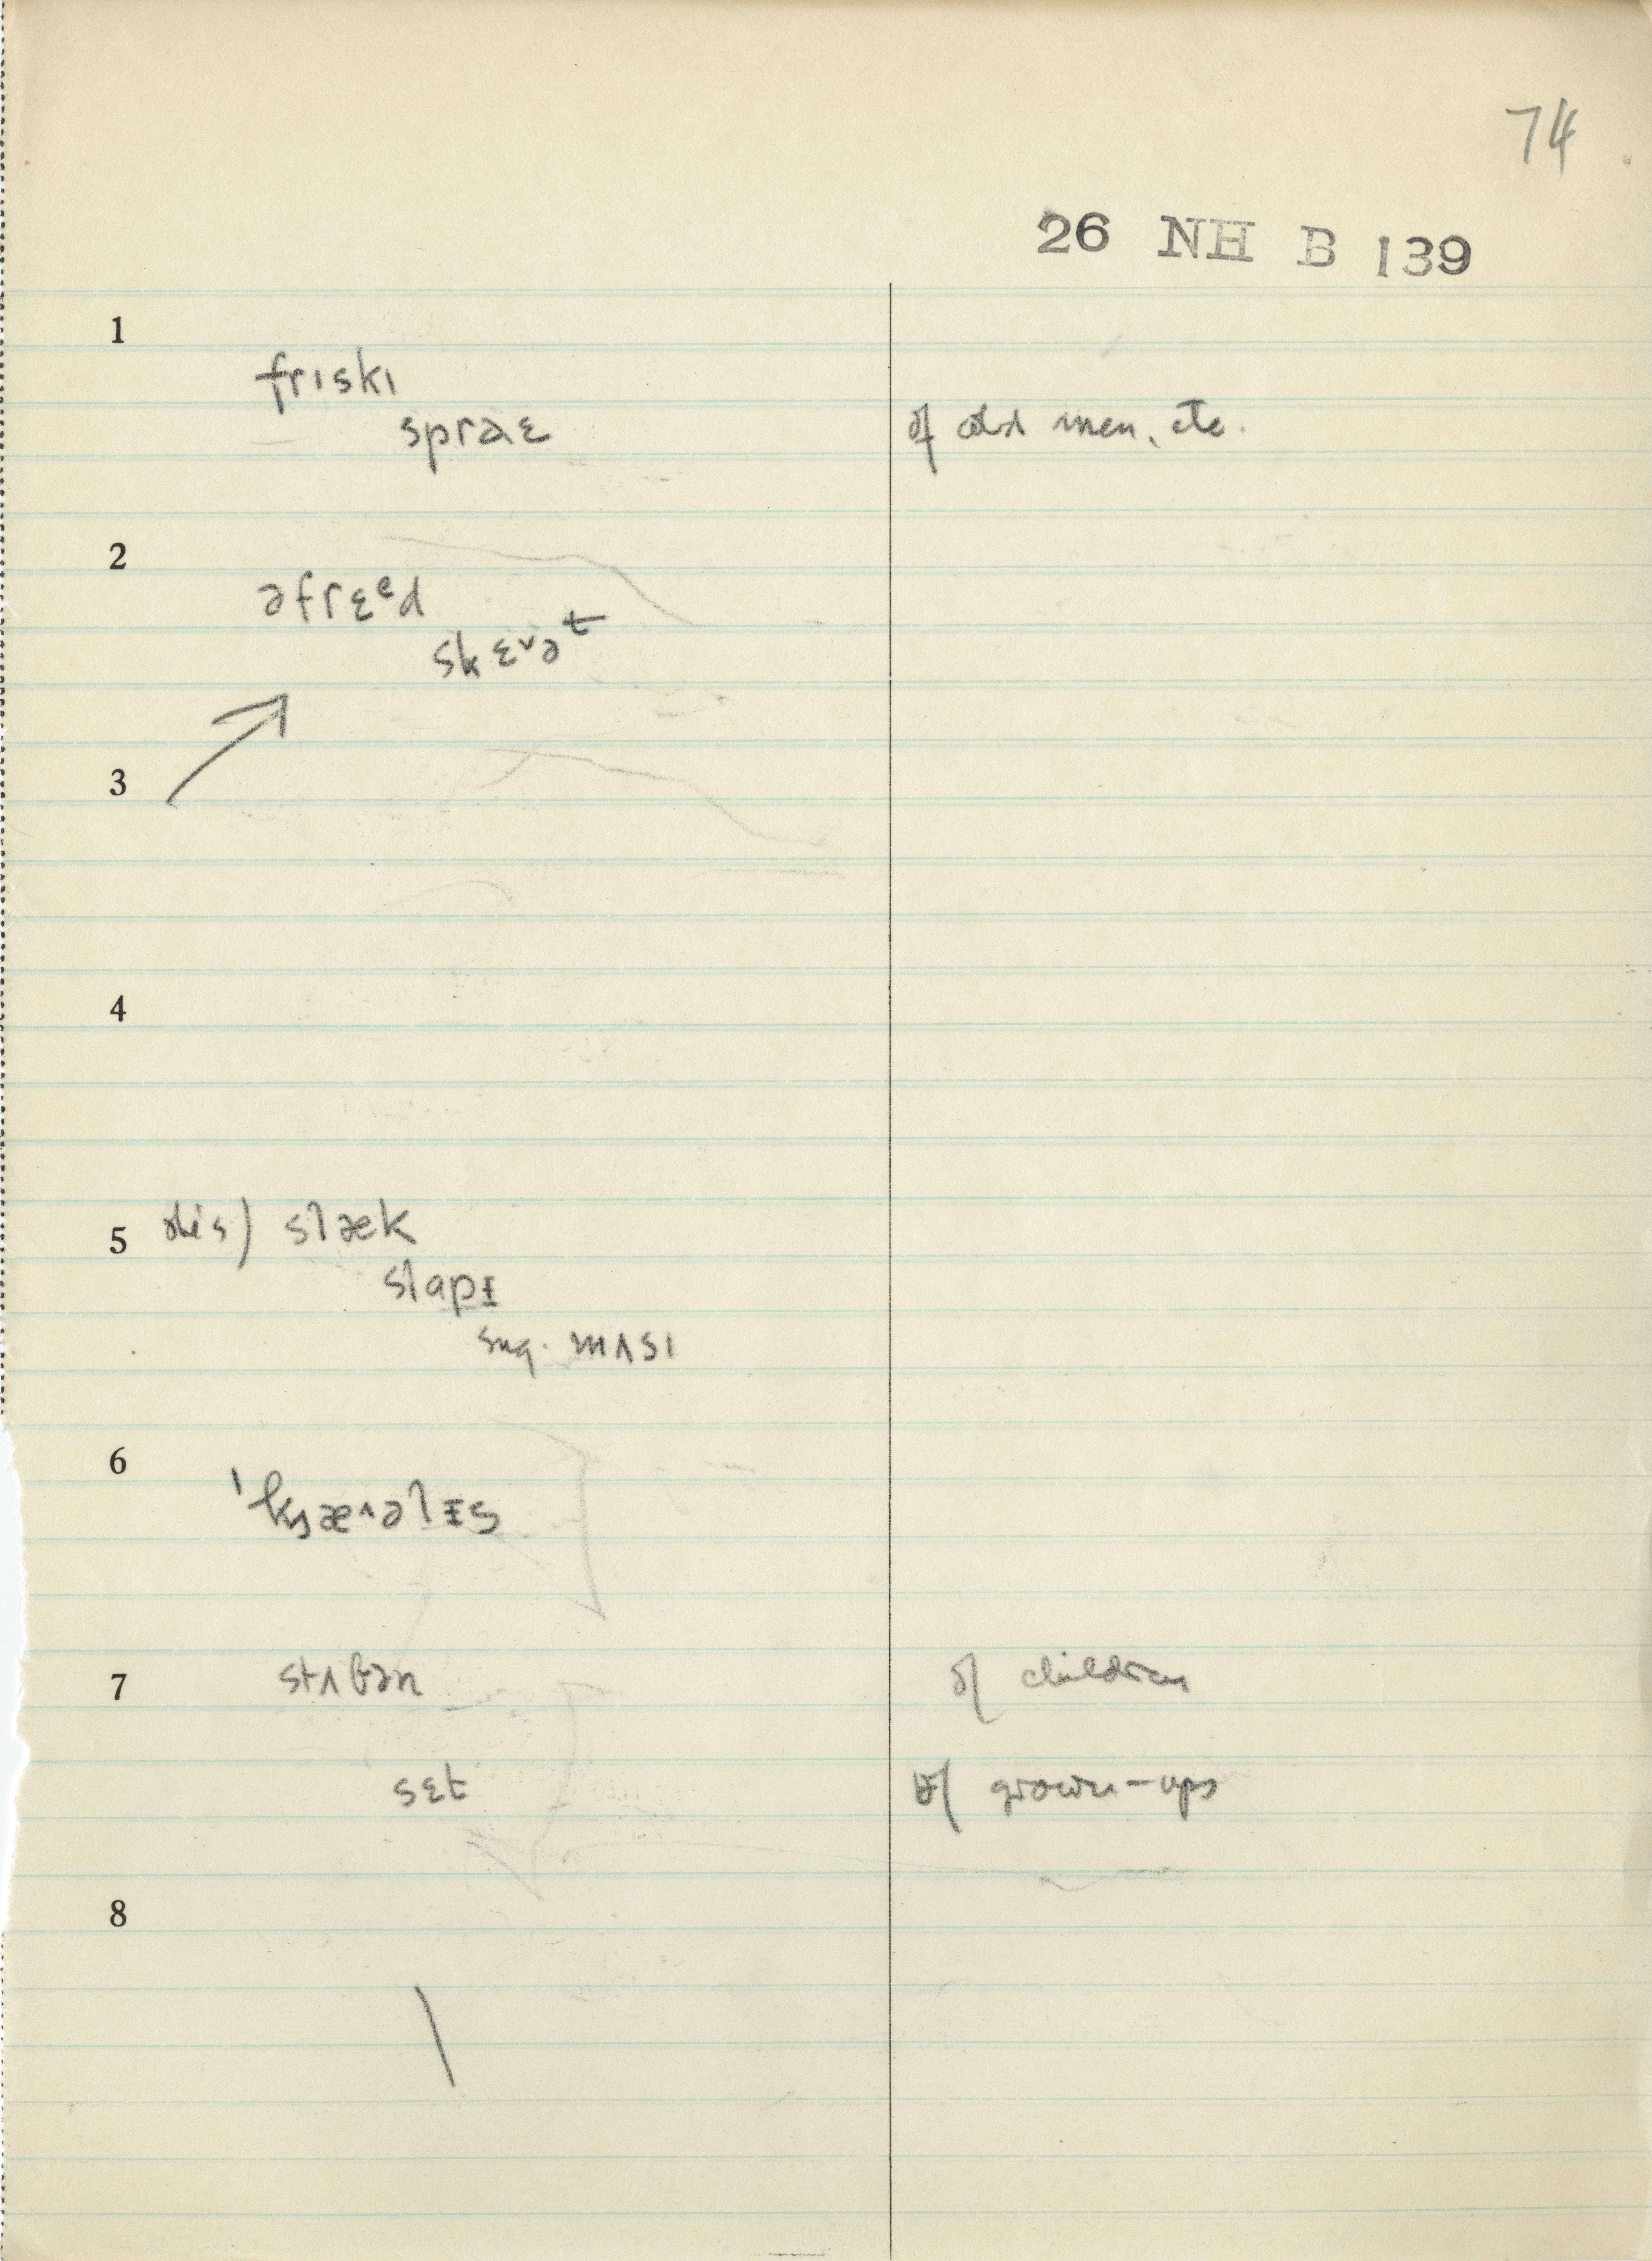 74
26 NH B 139
1
frɪskɪ
spraɛ of old men, etc.
2
əfrɛᵉd
skɛᵛəᵗ
3
4
5 slæk
slapɪ
sug. mʌsɪ
6
7 stʌbən of children
sɛt of grown-ups
8